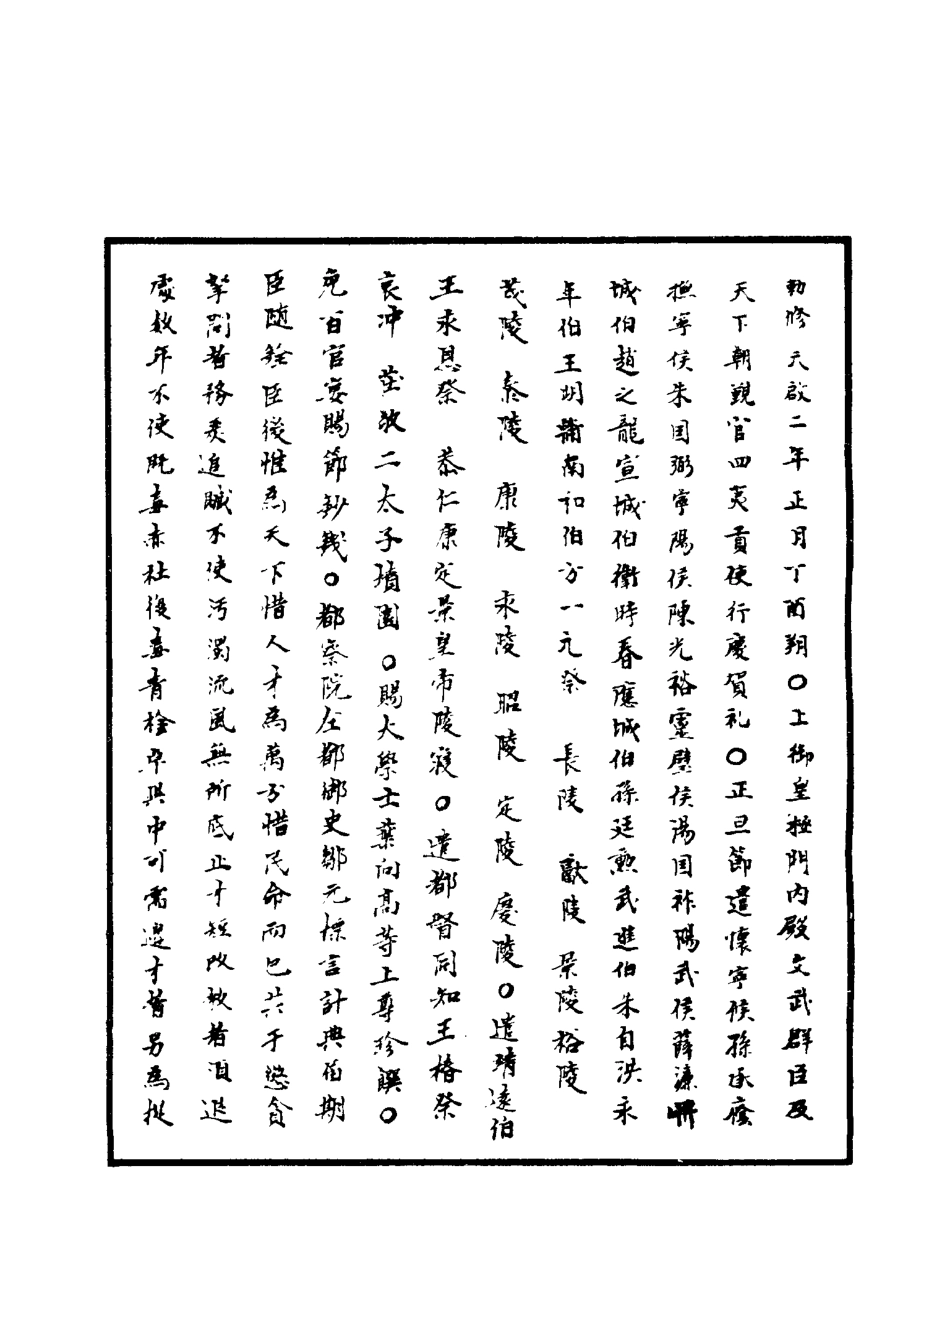 勅修天啟二年正月丁酉朔〇上御皇極門內殿文武群臣及
天下朝覲官四夷貢使行慶賀礼〇正旦節遣懷寧侯孫承廕
撫寧侯朱国弼寧陽侯陳光裕靈璧侯湯国祚陽武侯薛濂
城伯趙之龍宣城伯衛時春應城伯孫廷勲武進伯朱自洪永
年伯王明輔南和伯方一元祭 長陵 獻陵 景陵裕陵
茂陵 泰陵 康陵 永陵 昭陵 定陵 慶陵〇遣靖遠伯
王永恩祭 恭仁康定景皇帝陵寢〇遣都督同知王椿祭
哀冲 莊敬二太子墳園〇賜大學士葉向高等上尊珍饌〇
免百官宴賜節鈔錢〇都察院左都御史鄒元標言計典伯期
臣随銓臣後惟為天下惜人才為萬方惜民命而已共于懲貪
拏問者務美追贓不使污濁流風無所底止才短改教者酒退
處数年不使既毒赤社後毒青衿卒與中可需邊才者另為